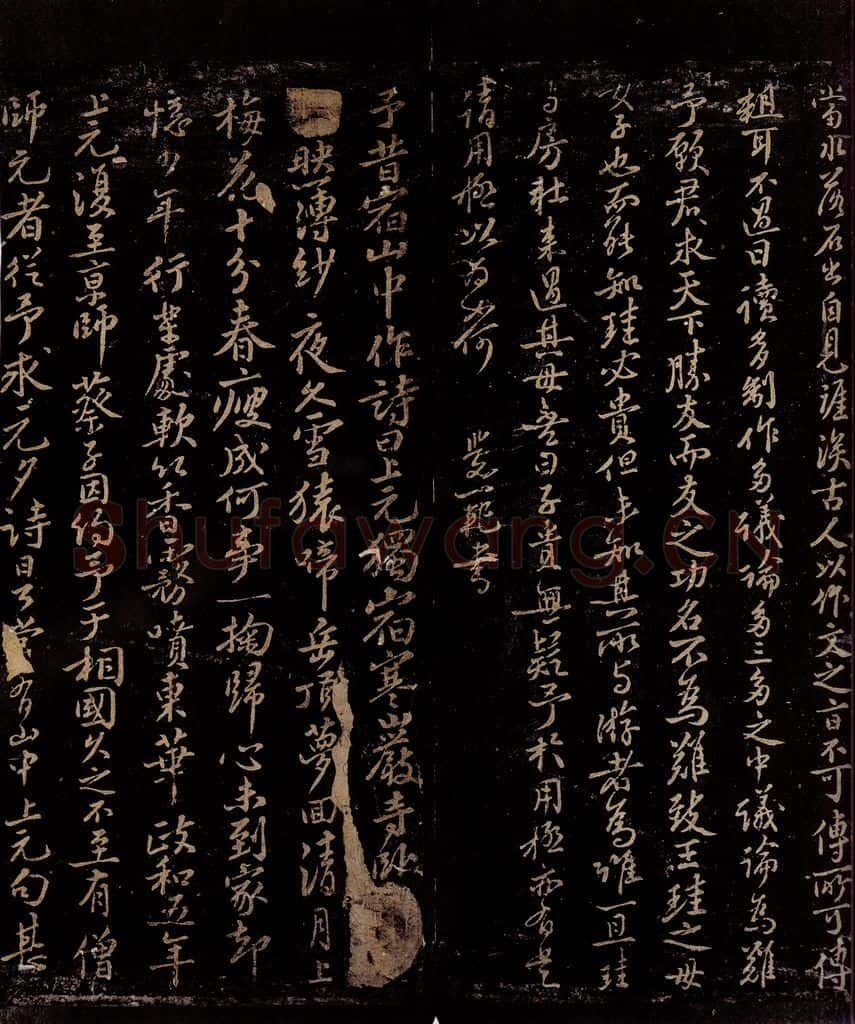 當水落石出自見涯涘古人以作文之旨不可傳所可傳
粗耳不過曰讀多制作多議論多三多之中議論為難
予願君求天下勝友而友之功名不為難致王珪之母
女子也而能知珪必貴但未知其所與游者為誰一旦珪
與房杜來過其母喜曰子貴無疑予於用極亦有是
請用極以為如何
覺範書
予昔宿山中作詩曰上元獨宿寒巖寺臥
映薄紗夜久雪猿啼岳頂夢回清月上
梅花十分春瘦成何事一掬歸心未到家却
憶少年行樂處軟紅香霧噴東華政和五年
上元復至京師蔡子因約予于相國久之不至有僧
師元者從予求元夕詩曰嘗有山中上元句甚
shufawang.cn